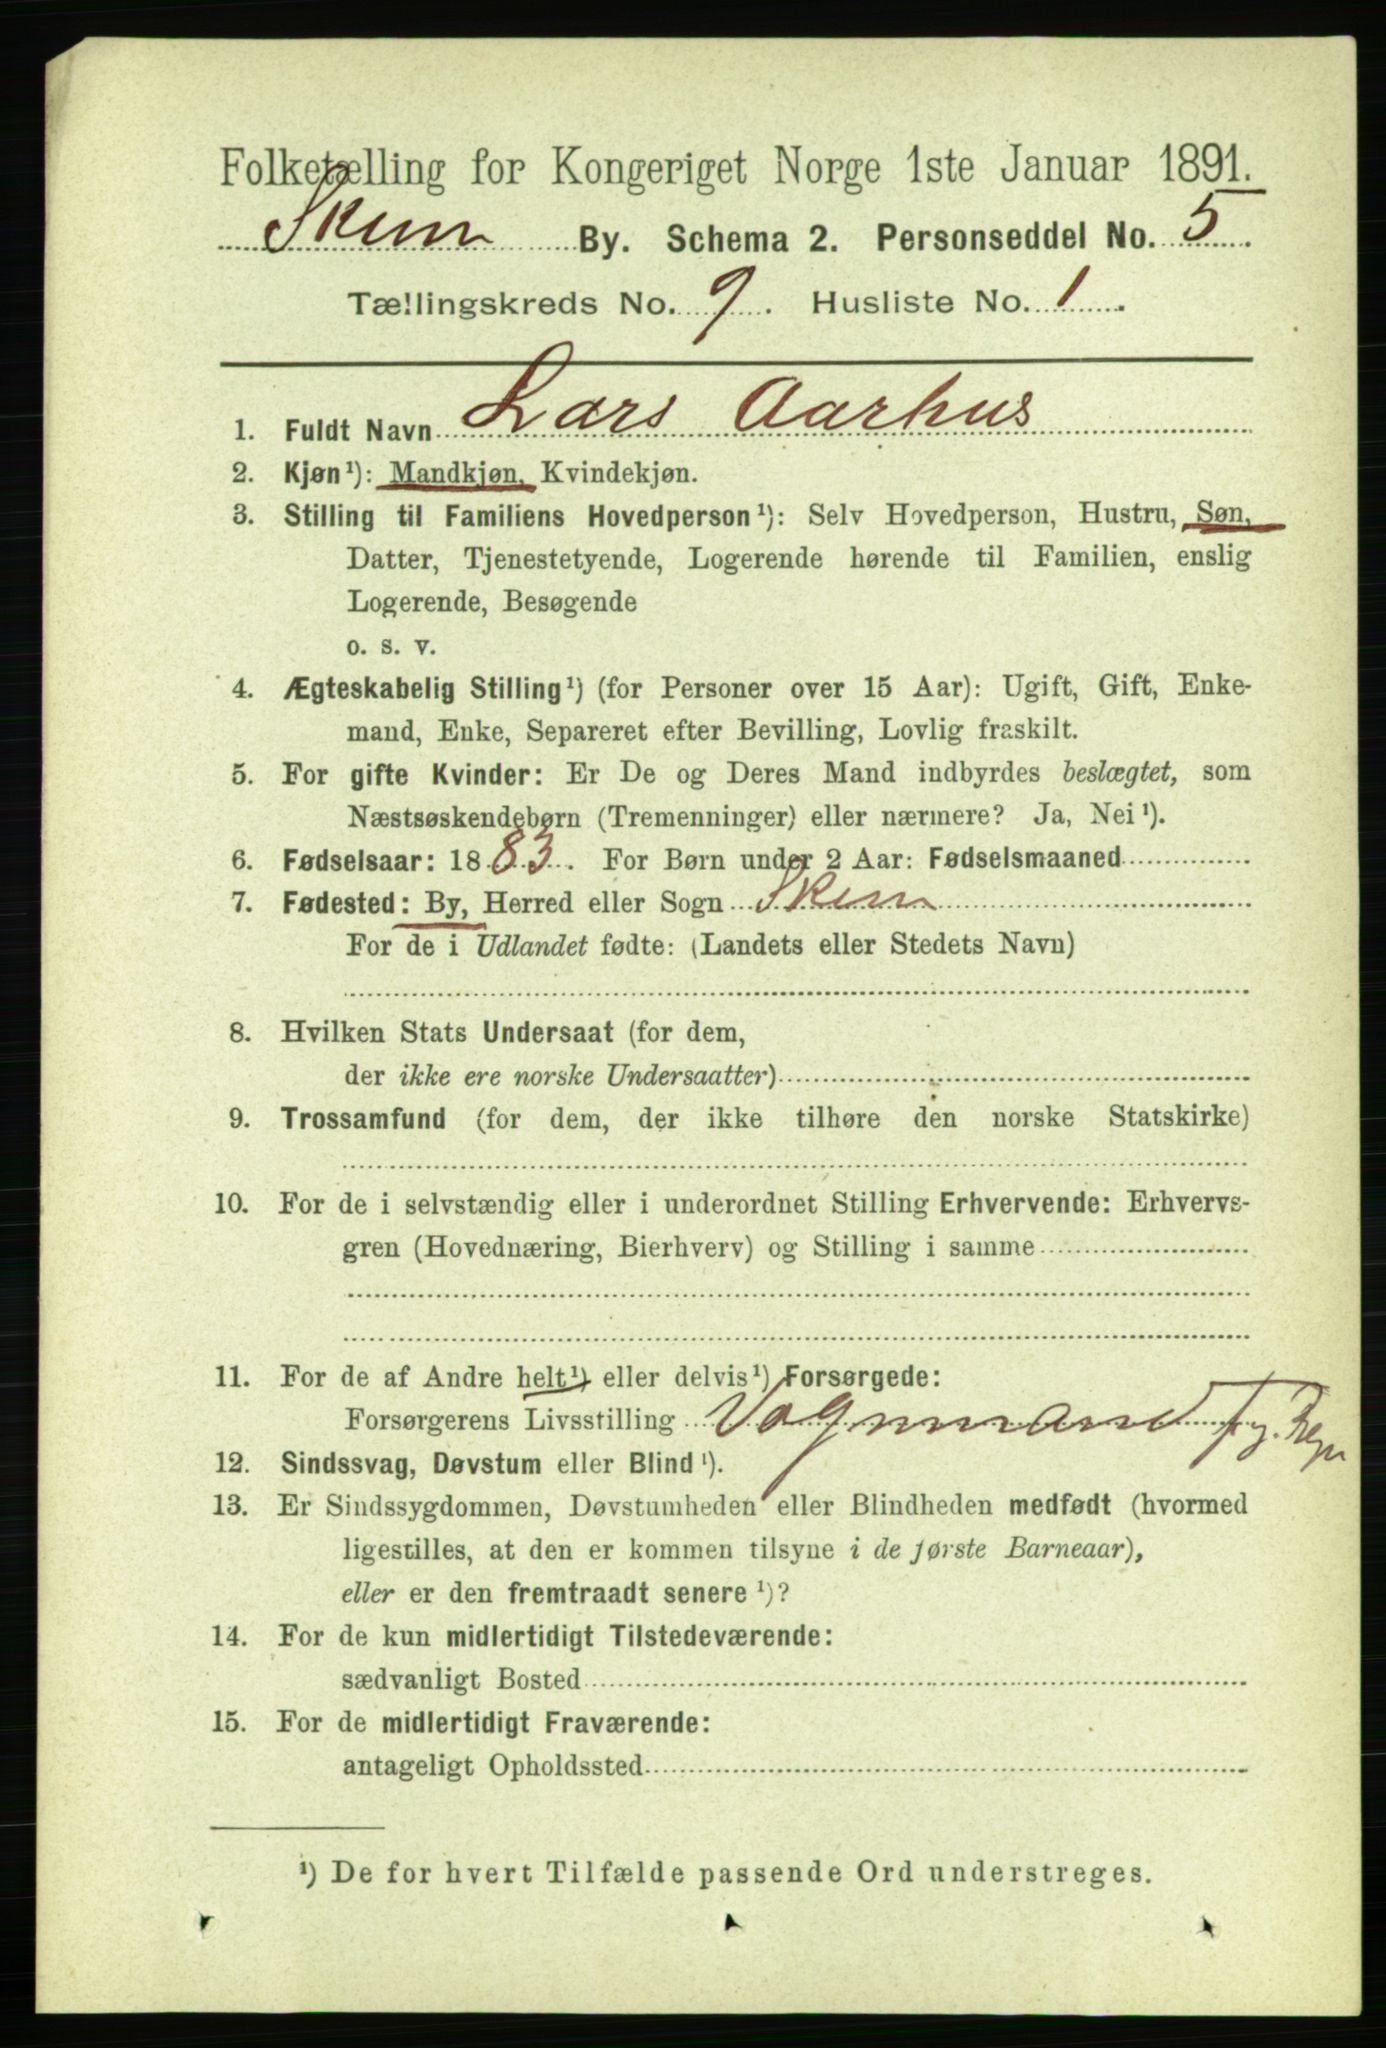 Folketælling for Kongeriget Norge 1ste Januar 1891.
Skien By. Schema 2. Personseddel No. 5
Tællingskreds No. 9. Husliste No. 1.
1. Fuldt Navn Lars Aarhus
2. Kjøn¹): Mandkjøn, Kvindekjøn.
3. Stilling til Familiens Hovedperson¹): Selv Hovedperson, Hustru, Søn,
Datter, Tjenestetyende, Logerende hørende til Familien, enslig
Logerende, Besøgende
o. s. v.
4. Ægteskabelig Stilling¹) (for Personer over 15 Aar): Ugift, Gift, Enke-
mand, Enke, Separeret efter Bevilling, Lovlig fraskilt.
5. For gifte Kvinder: Er De og Deres Mand indbyrdes beslægtet, som
Næstsøskendebørn (Tremenninger) eller nærmere? Ja, Nei¹).
6. Fødselsaar: 1883. For Børn under 2 Aar: Fødselsmaaned
7. Fødested: By, Herred eller Sogn Skien
For de i Udlandet fødte: (Landets eller Stedets Navn)
8. Hvilken Stats Undersaat (for dem,
der ikke ere norske Undersaatter)
9. Trossamfund (for dem, der ikke tilhøre den norske Statskirke)
10. For de i selvstændig eller i underordnet Stilling Erhvervende: Erhvervs-
gren (Hovednæring, Bierhverv) og Stilling i samme
11. For de af Andre helt¹) eller delvis¹) Forsørgede:
Forsørgerens Livsstilling Vognmand
12. Sindssvag, Døvstum eller Blind¹).
13. Er Sindssygdommen, Døvstumheden eller Blindheden medfødt (hvormed
ligestilles, at den er kommen tilsyne i de første Barneaar),
eller er den fremtraadt senere¹)?
14. For de kun midlertidigt Tilstedeværende:
sædvanligt Bosted
15. For de midlertidigt Fraværende:
antageligt Opholdssted
¹) De for hvert Tilfælde passende Ord understreges.